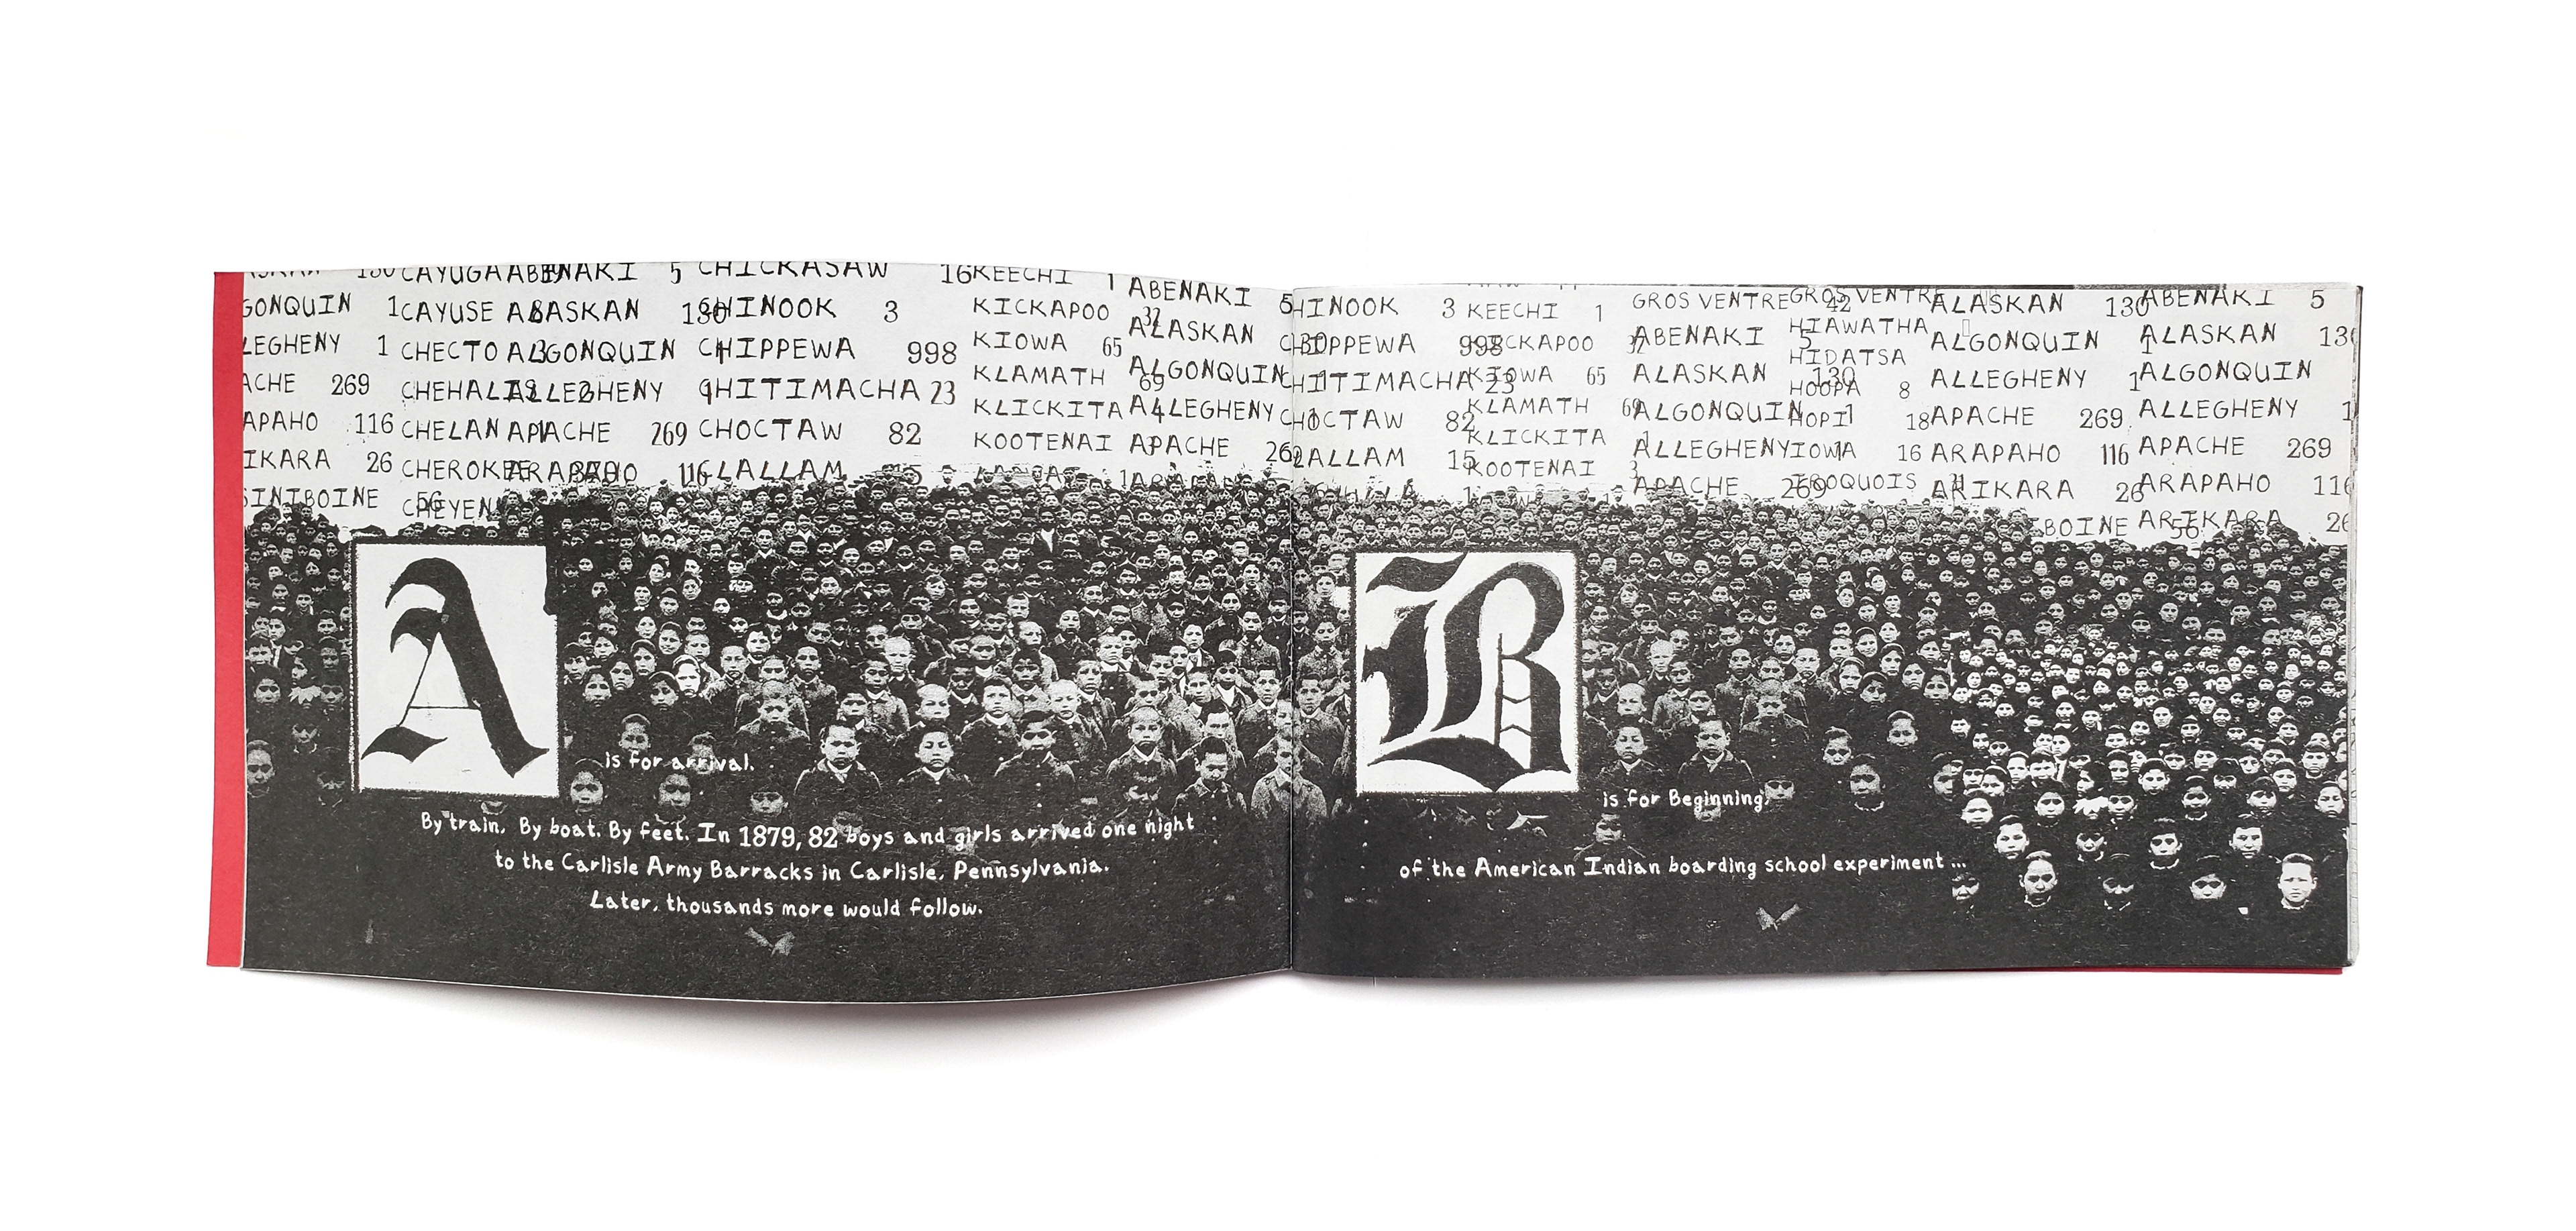 GONQUIN 1
LEGHENY 1
ACHE 269
APAHO 116
IKARA 26
SINIBOINE 56
CAYUGA
CAYUSE
CHECTO
CHEHALIS
CHELAN
CHEROKEE
CHEYEN
ABENAKI 5
ALASKAN 130
ALGONQUIN 1
ALLEGHENY
APACHE 269
ARAPAHO 116
CHICKASAW 16
CHINOOK 3
CHIPPEWA 998
CHITIMACHA 23
CHOCTAW 82
CLALLAM 15
KEECHI 1
KICKAPOO 32
KIOWA 65
KLAMATH 69
KLICKITA
KOOTENAI
ABENAKI 5
ALASKAN
ALGONQUIN
ALLEGHENY
APACHE 269
A
is for arrival.
By train. By boat. By feet. In 1879, 82 boys and girls arrived one night
to the Carlisle Army Barracks in Carlisle, Pennsylvania.
Later, thousands more would follow.
HINOOK 3
CHIPPEWA 998
CHITIMACHA 23
CHOCTAW 82
LALLAM 15
KEECHI 1
KICKAPOO 32
KIOWA 65
KLAMATH 69
KLICKITA 1
KOOTENAI 3
GROS VENTRE 42
ABENAKI 5
ALASKAN 130
ALGONQUIN 1
ALLEGHENY 1
APACHE 269
GROS VENTRE
HIAWATHA
HIDATSA
HOOPA 8
HOPI 18
IOWA 16
IROQUOIS
ALASKAN 130
ALGONQUIN 1
ALLEGHENY 1
APACHE 269
ARAPAHO 116
ARIKARA 26
BOINE 56
ABENAKI 5
ALASKAN 130
ALGONQUIN
ALLEGHENY 1
APACHE 269
ARAPAHO 116
ARIKARA 26
B
is for Beginning,
of the American Indian boarding school experiment ...